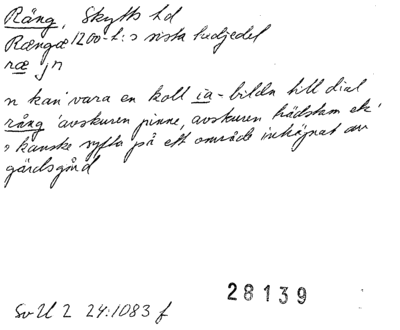 Räng, Skytts hd
Rængæ 1200-t:s sista tredjedel
ræ jn
n kan vara en koll ia-bildn till dial
rång 'avskuren pinne, avskuren trädstam ek'
o kanske syfta på ett område inhägnat av
gärdsgård
SvU 2 24:1083 f
28139